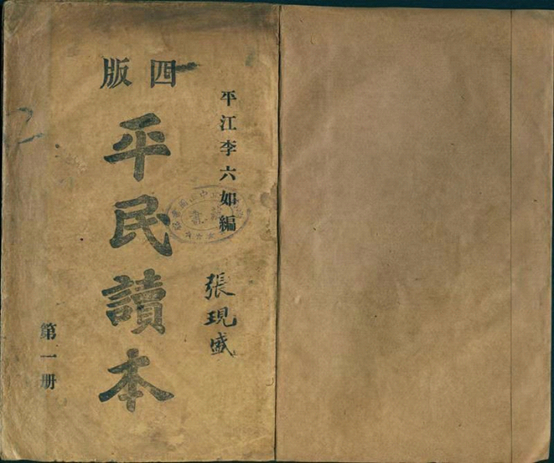 四版
平江李六如編
平民讀本
張現盛
第一册